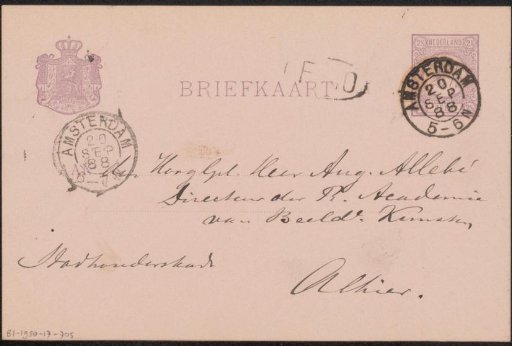 F D
NEDERLAND
BRIEFKAART
AMSTERDAM
20
SEP
88
5-6N
AMSTERDAM
20
SEP
88
Hooglgb. Heer Aug. Allebé
Directeur der R. Academie
van Beeld. Kunsten
Stadhouderskade
Alhier.
61-1950-17-705